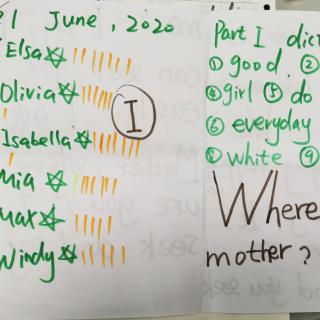 21 June, 2020
Elsa
Olivia
I
Isabella
Mia
Max
Windy
Part I dic
① good. ②
④ girl ⑤ do
⑥ everyday
⑧ white ⑨
Where
mother?